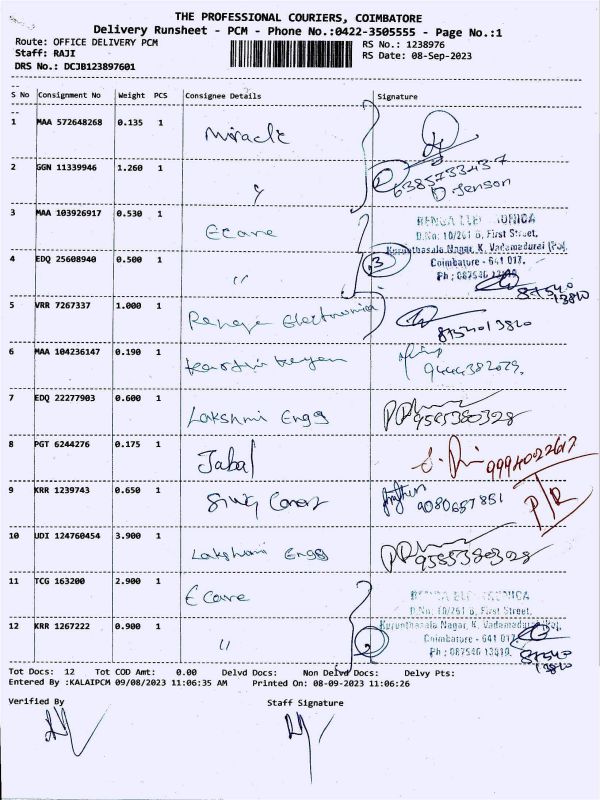 THE PROFESSIONAL COURIERS, COIMBATORE
Delivery Runsheet - PCM - Phone No.:0422-3505555 - Page No.:1
Route: OFFICE DELIVERY PCM
RS No.: 1238976
Staff: RAJI
RS Date: 08-Sep-2023
DRS No.: DCJB123897601
S No Consignment No Weight PCS Consignee Details Signature
1 MAA 572648268 0.135 1 Miracle
2 GGN 11339946 1.260 1 〃 2 6385733437
D Jenson
3 MAA 103926917 0.530 1 Ecare
RENGA ELECTRONICA
D.No: 10/261 B, First Street,
Kurunthasala Nagar, K. Vadamadurai (Po),
4 EDQ 25608940 0.500 1 〃 3 Coimbatore - 641 017.
Ph : 087540 13810
87540
13810
5 VRR 7267337 1.000 1 Renga Electronica 8754013810
6 MAA 104236147 0.190 1 Karthikeyan
7 EDQ 22277903 0.600 1 Lakshmi Engg 9585380328
8 PGT 6244276 0.175 1 Jabal 9994022617
P/R
9 KRR 1239743 0.650 1 9080657851
10 UDI 124760454 3.900 1 Lakshmi Engg 9585380328
11 TCG 163200 2.900 1 Ecare
RENGA ELECTRONICA
D.No: 10/261 B, First Street,
12 KRR 1267222 0.900 1 〃 2 Kurunthasala Nagar, K. Vadamadurai (Po),
Coimbatore - 641 017
Ph : 087540 13810.
87540
13810
Tot Docs: 12 Tot COD Amt: 0.00 Delvd Docs: Non Delvd Docs: Delvy Pts:
Entered By :KALAIPCM 09/08/2023 11:06:35 AM Printed On: 08-09-2023 11:06:26
Verified By Staff Signature